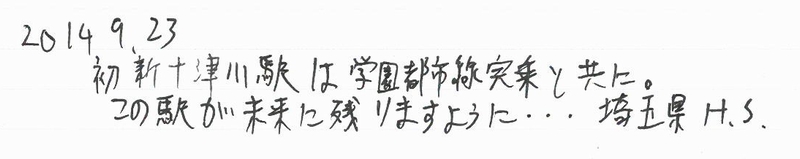 2014.9.23
初新十津川駅は学園都市線完乗と共に。
この駅が未来に残りますように・・・ 埼玉県 H.S.